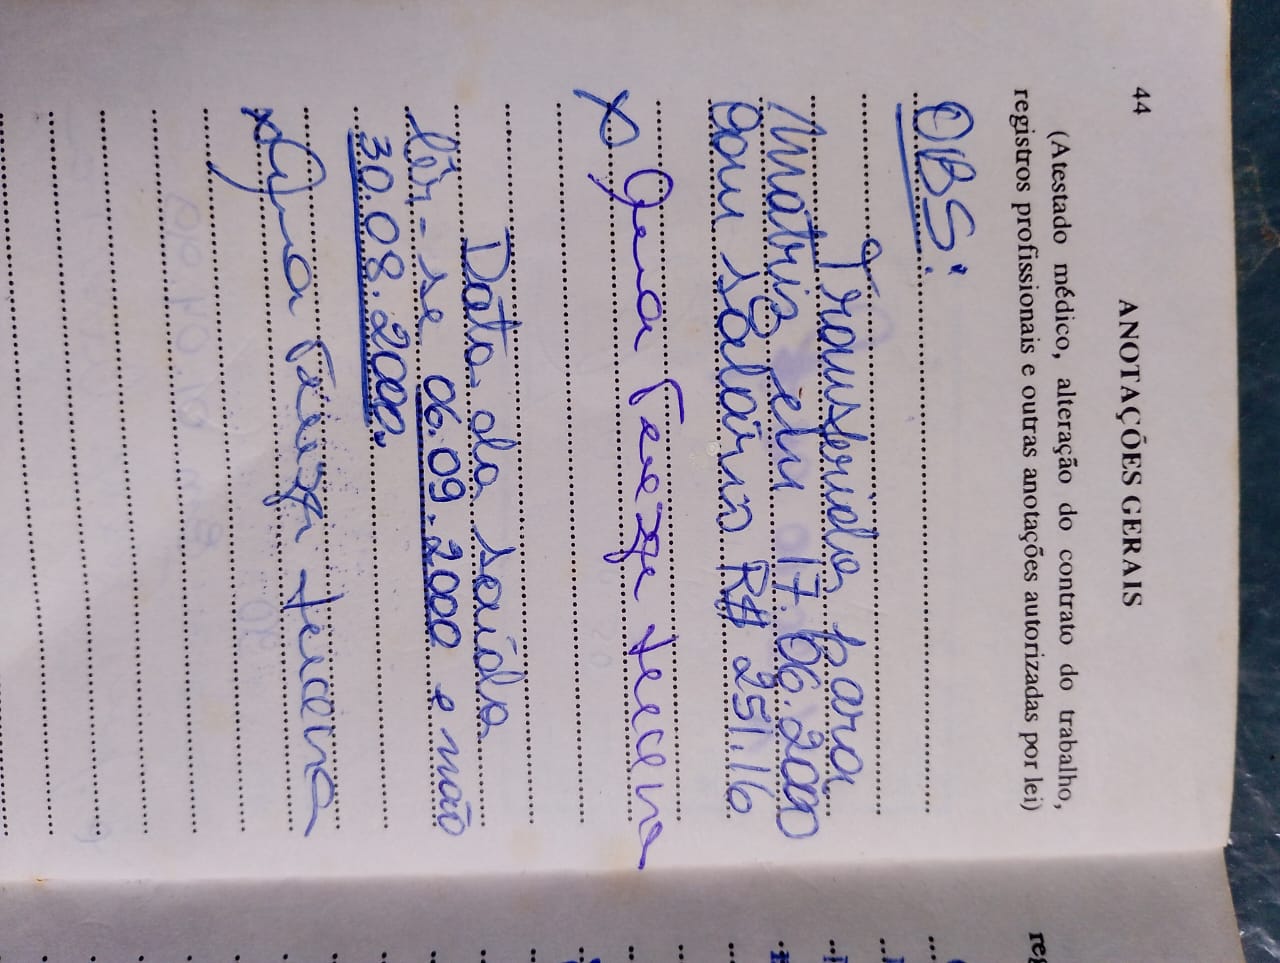 44
ANOTAÇÕES GERAIS
(Atestado médico, alteração do contrato do trabalho,
registros profissionais e outras anotações autorizadas por lei)
OBS:
Transferida para
Matriz em 17.06.2000
com salário R$ 251.16
x Ana Tereza
Data da saída
lêr-se 06.09.2000 e não
30.08.2000.
x Ana Tereza